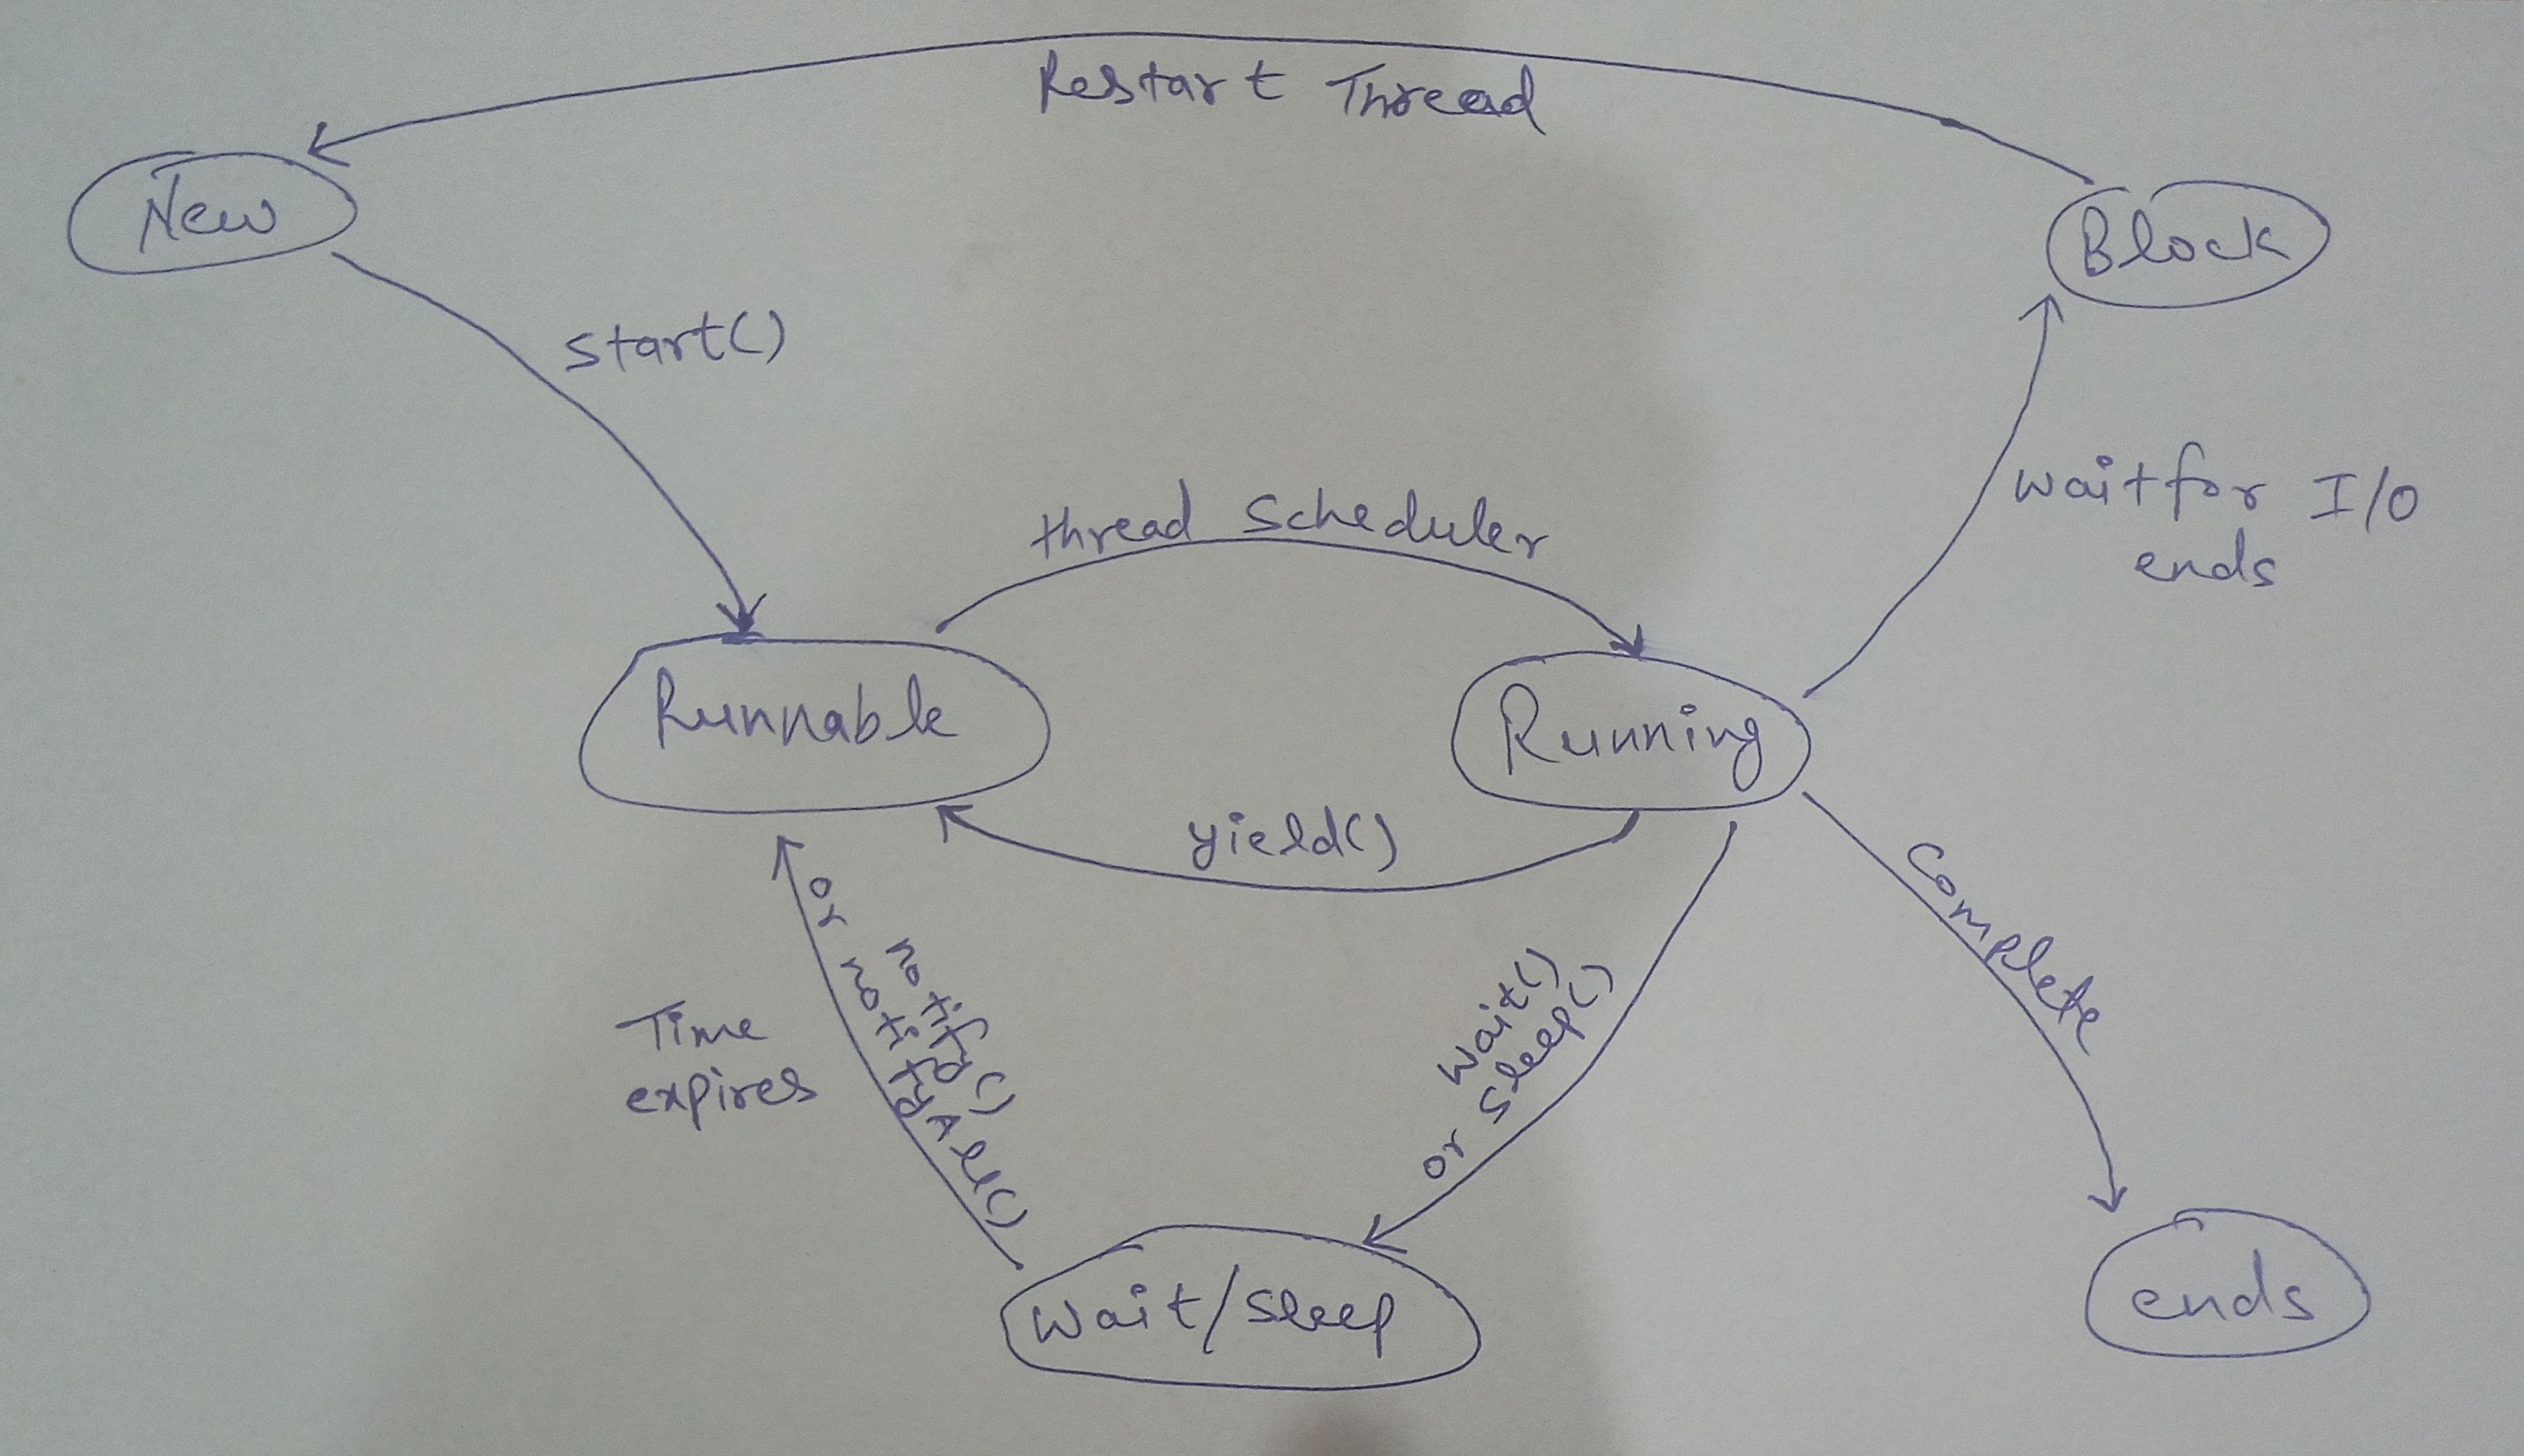 Restart Thread
New
Block
start()
wait for I/O
ends
thread scheduler
Runnable
Running
yield()
Complete
Time
expires
notify()
or notifyAll()
wait()
or sleep()
Wait/sleep
ends